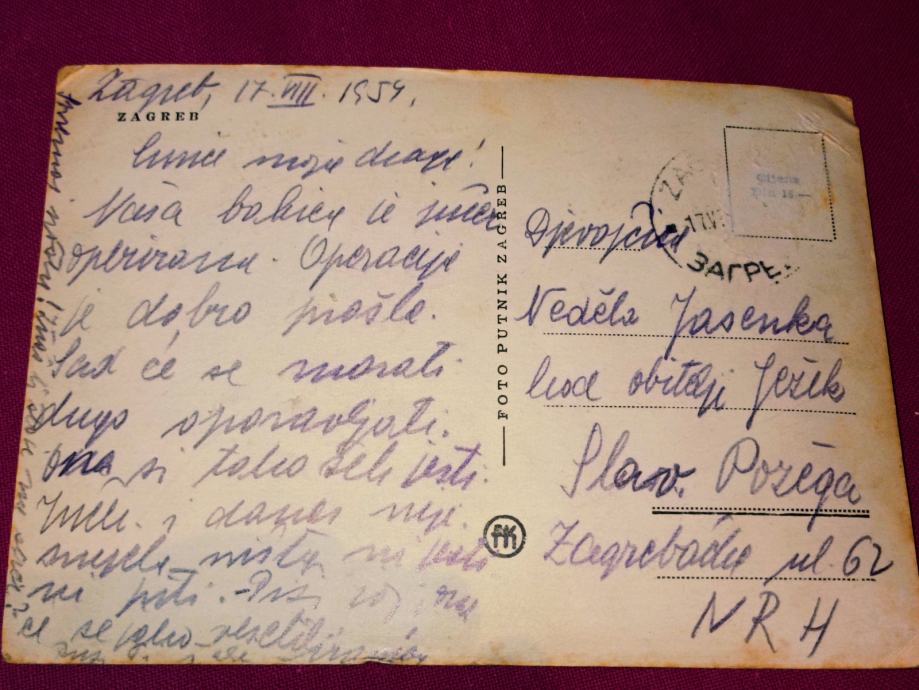 Zagreb, 17. VIII. 1959.
ZAGREB
moje drago!
Naša babica je jučer
operirana. Operacija
je dobro prošla.
Sad će se morati
dugo oporavljati.
Ona si tako želi jesti.
Jučer i danas nije
smjela ništa ni jesti
ni piti. Piši joj, ona
će se jako veseliti.
FOTO PUTNIK ZAGREB
Cijena
Din 15.—
17.V
ЗАГРЕ
Djevojčica
Neđela Jasenka
kod obitelji Ježek
Slav. Požega
Zagrebačka ul. 62
NRH